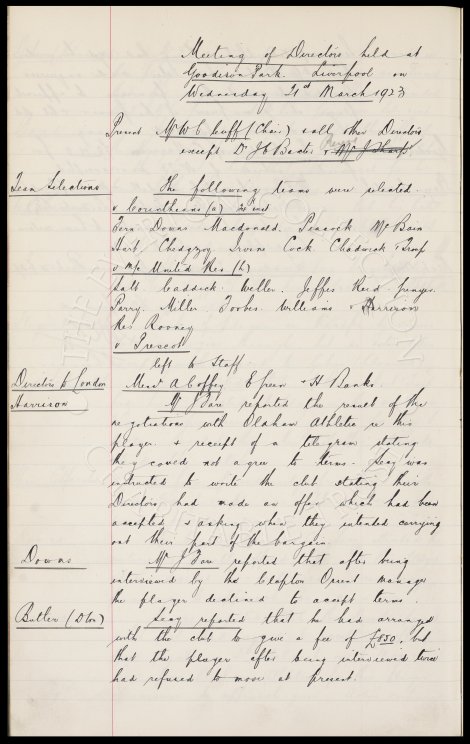 Meeting of Directors held at
Goodison Park. Liverpool on
Wednesday 21st March 1923
Present Mr W C Cuff (Chair) & all other Directors
except Dr J C Baxter & Mr J Sharp
Team Selections
The following teams were selected.
v Corinthians (a)
Fern Downs Macdonald. Peacock McBain
Hart Chedgzoy Irvine Cock Chadwick & Troup
v M/c United Res (h)
Salt Caddick. Weller. Jeffes Reid Grenyer.
Parry. Miller. Forbes. Williams & Harrison
Res Rooney
v Prescot
left to Staff
Directors to London
Messrs A Coffey E Green & H Banks.
Harrison
Mr J Fare reported the result of the
negotiations with Oldham Athletic re this
player. & receipt of a telegram stating
they could not agree to terms. Secy was
instructed to write the club stating their
Directors had made an offer which had been
accepted & asking when they intended carrying
out their part of the bargain
Downs
Mr J Fare reported that after being
interviewed by the Clapton Orient manager
the player declined to accept terms.
Butler (Bton)
Secy reported that he had arranged
with the club to give a fee of but
that the player after being interviewed twice
had refused to move at present.